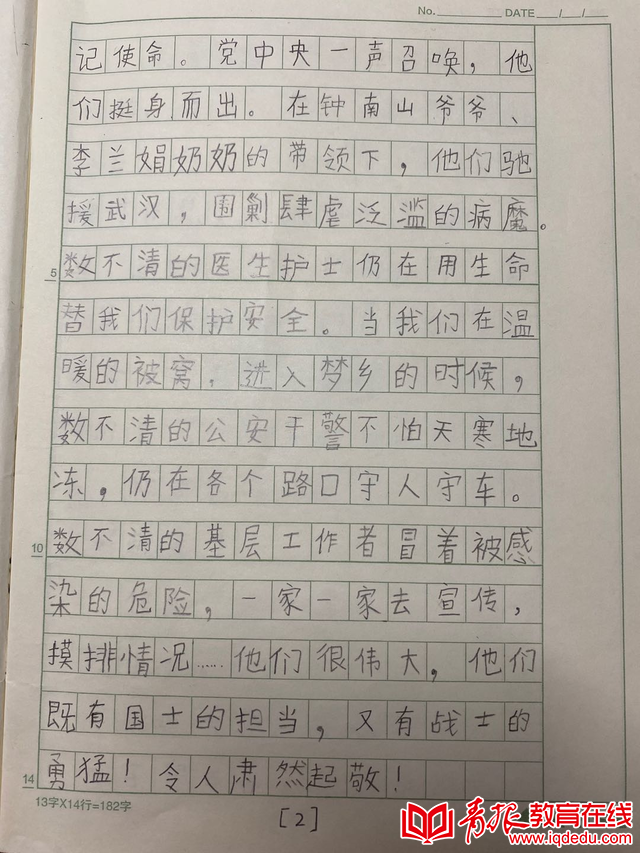 No. DATE / /
记使命。党中央一声召唤，他
们挺身而出。在钟南山爷爷、
李兰娟奶奶的带领下，他们驰
援武汉，围剿肆虐泛滥的病魔。
5 数不清的医生护士仍在用生命
替我们保护安全。当我们在温
暖的被窝，进入梦乡的时候，
数不清的公安干警不怕天寒地
冻，仍在各个路口守人守车。
10 数不清的基层工作者冒着被感
染的危险，一家一家去宣传，
摸排情况……他们很伟大，他们
既有国士的担当，又有战士的
14 勇猛！令人肃然起敬！
13字X14行=182字
[2]
青报教育在线
www.iqdedu.com